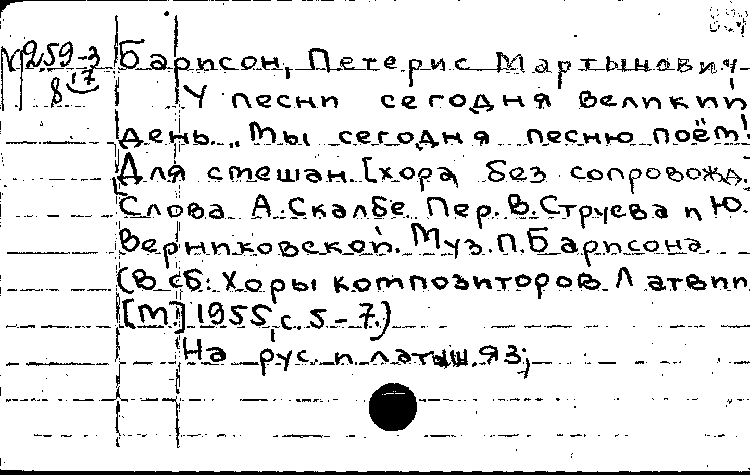 Барисон, Петерис Мартынович
У песни сегодня великий
день. „Мы сегодня песню поём!
Для смешан. [хора, без сопровожд.
Слова А. Скалбе Пер. В. Струева и Ю.
Верниковской. Муз. П. Барисона
(В сб: Хоры композиторов Латвии
[М.] 1955, с. 5-7.)
На рус. и латыш. яз;